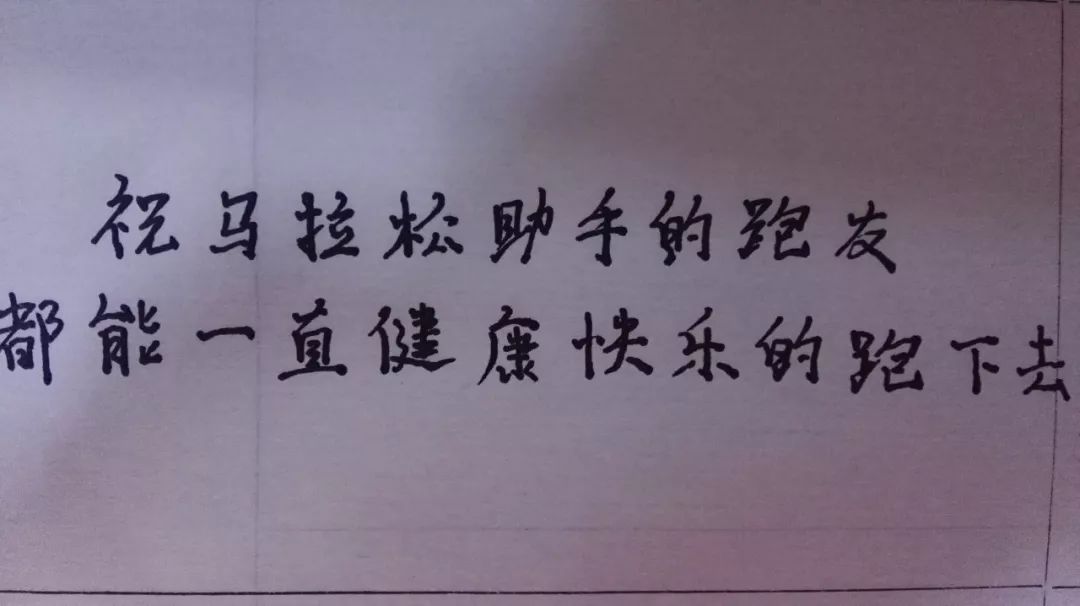 祝马拉松助手的跑友
都能一直健康快乐的跑下去